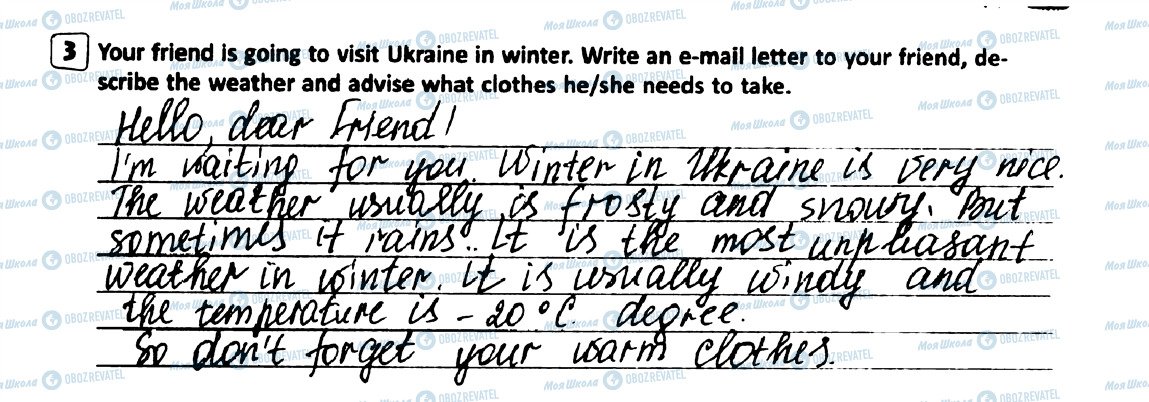 3 Your friend is going to visit Ukraine in winter. Write an e-mail letter to your friend, de-
scribe the weather and advise what clothes he/she needs to take.
Hello, dear friend!
I'm waiting for you. Winter in Ukraine is very nice.
The weather usually is frosty and snowy. But
sometimes it rains. It is the most unpleasant
weather in winter. It is usually windy and
the temperature is -20 °C degree.
So don't forget your warm clothes.
Моя Школа OBOZREVATEL